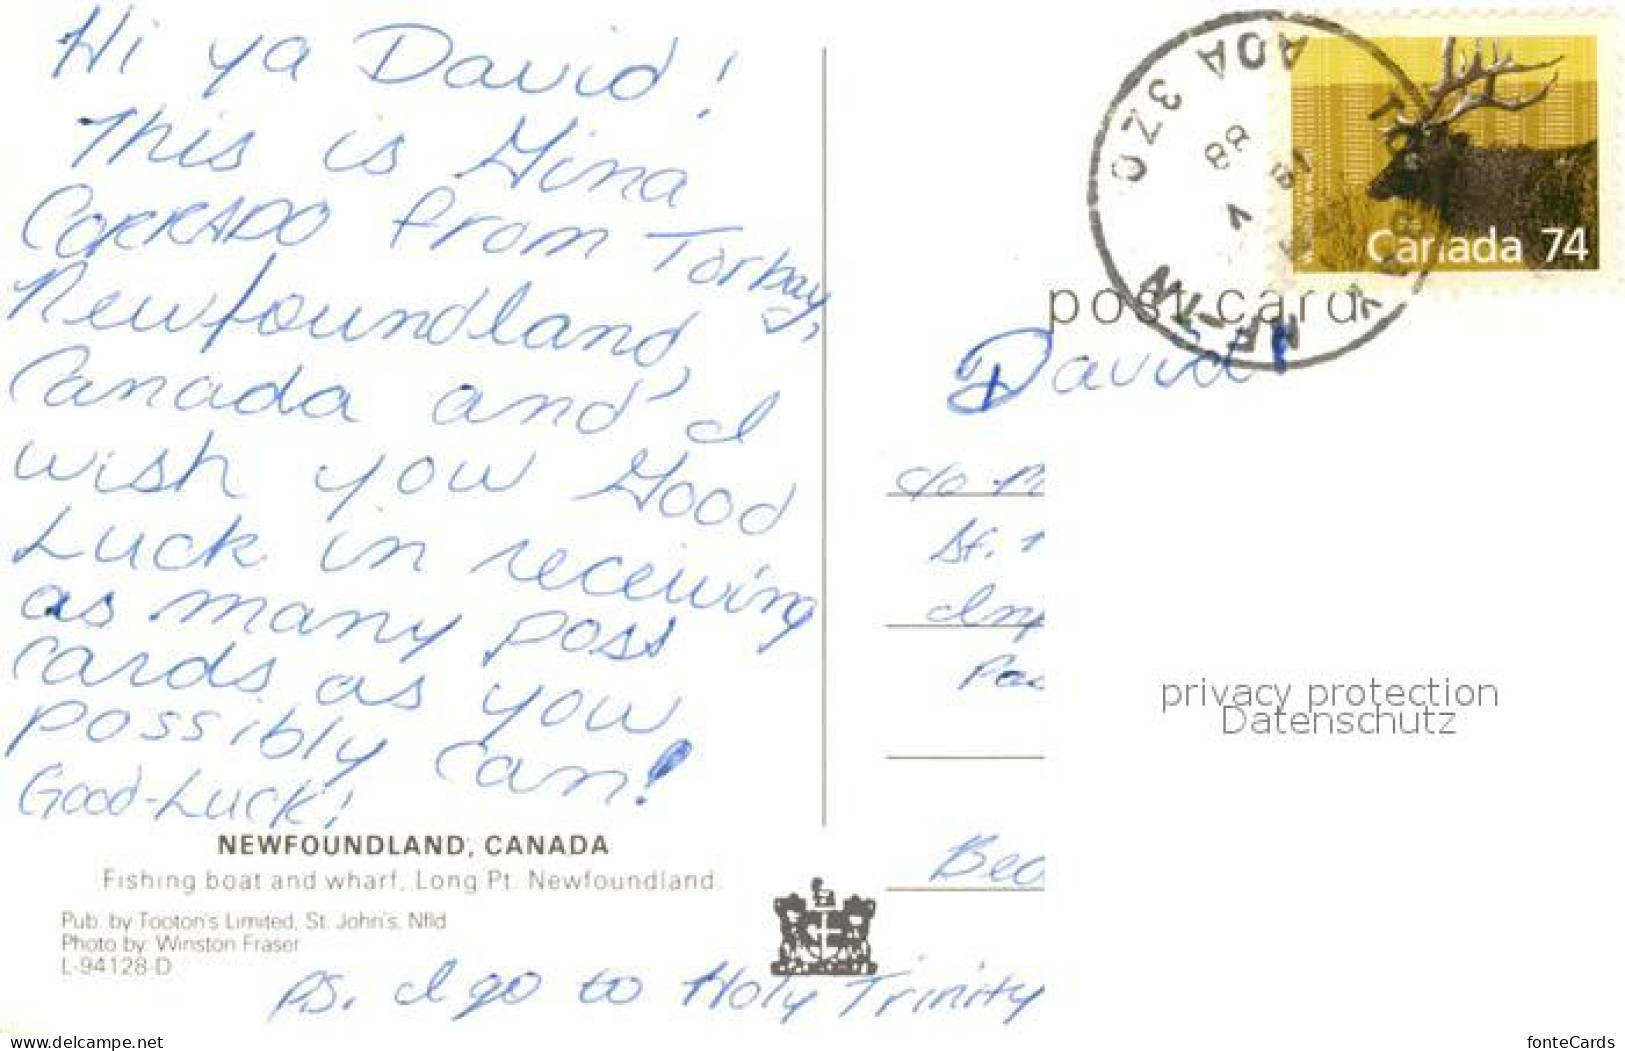 Hi ya David!
This is Gina
CORRADO from Torbay,
Newfoundland,
Canada and I
wish you Good
Luck in receiving
as many post
cards as you
possibly can!
Good-Luck!
NEWFOUNDLAND, CANADA
Fishing boat and wharf, Long Pt. Newfoundland.
Pub. by Tooton's Limited, St. John's, Nfld
Photo by: Winston Fraser
L-94128-D
P.S. I go to Holy Trinity
A0A 3Z0
88
NF-TN
Canada 74
post card
David
c/o
St.
privacy protection
Datenschutz
www.delcampe.net
fonteCards